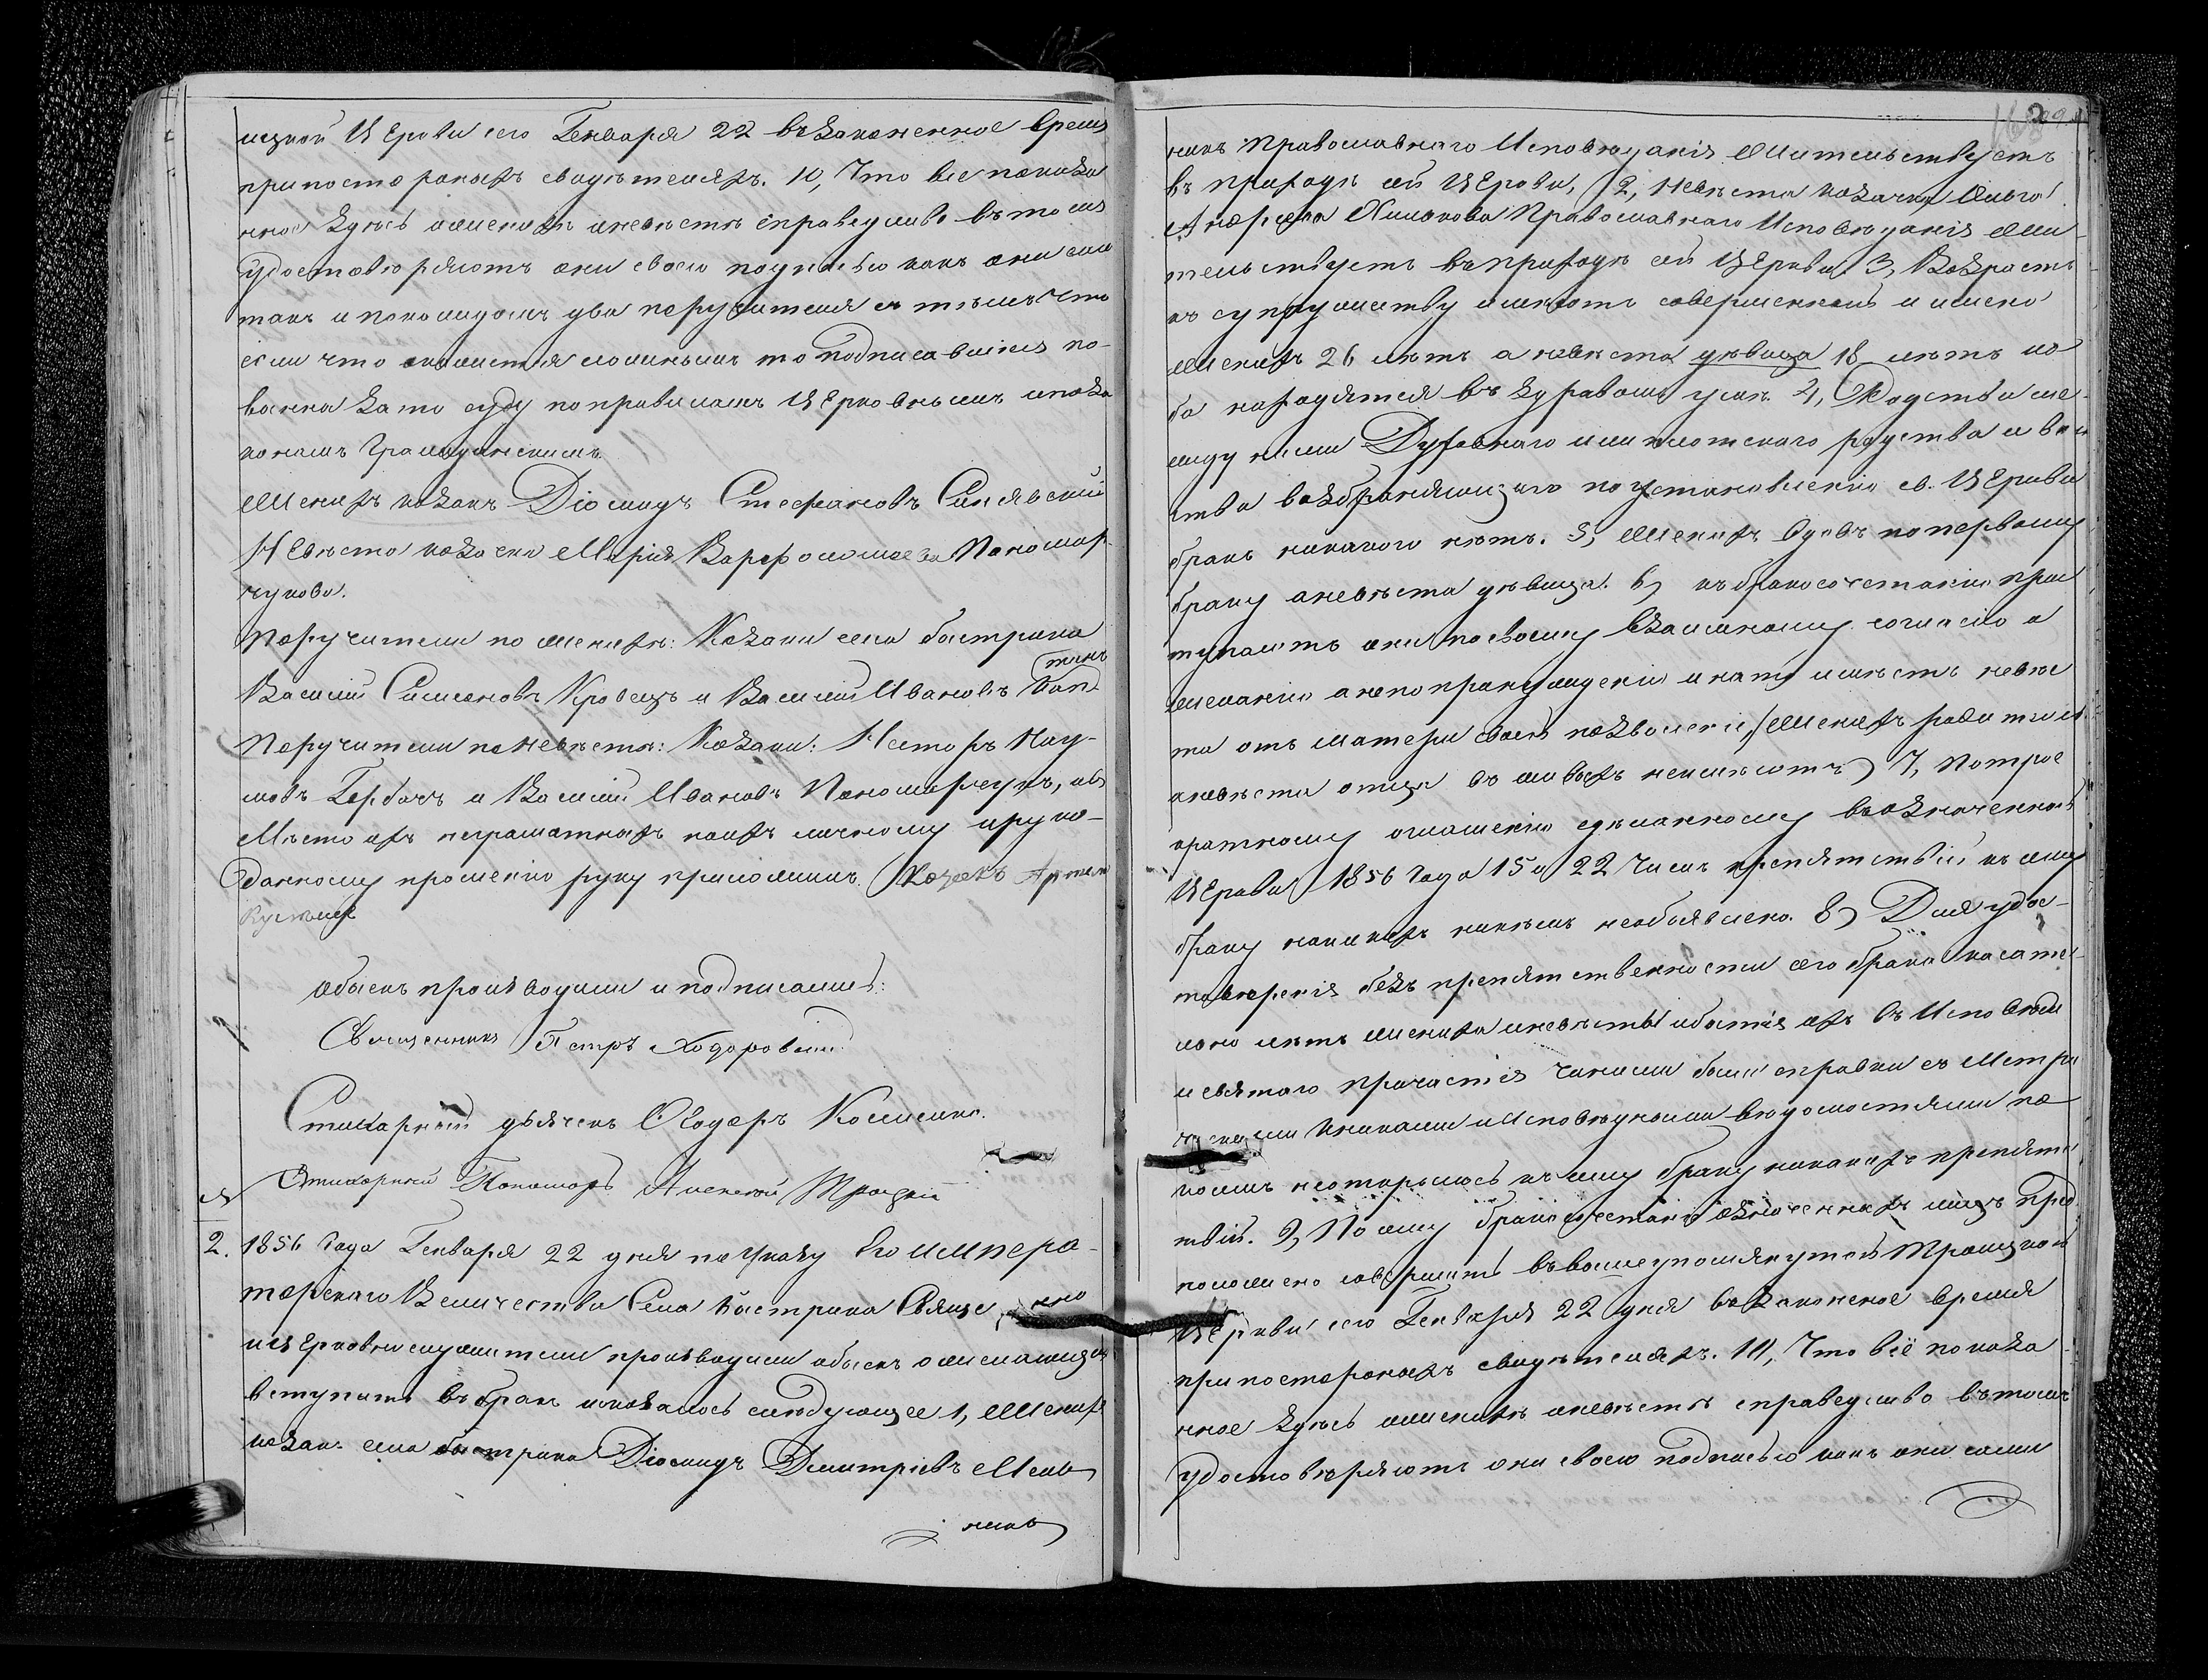 ицкой Церкви сего Генваря 22 въ законенное время
припостороныхъ свидѣтеляхъ. 10, Что все показа
нное здѣсь оженихѣ иневѣстѣ справедливо въ томъ
удостовѣряютъ они своею подписью какъ они сами
такъ и по каждомъ два поручителя съ тѣмъ что
если что окажется ложнымъ то Подписавшiеся по-
винны зато суду по правиламъ Церковнымъ и поза
конамъ Гражданскимъ.
Женихъ козакъ Дiомидъ Стефановъ Синявскiй
Невѣста козачка Марiя Варфоломеева Пономар-
чукова.
Поручители по женихѣ: Козаки села быстрика
Василiй Симоновъ Кровецъ и Василiй Ивановъ
Поручители по Невѣстѣ: Козаки: Несторъ Нау-
мовъ Горбачъ и Василiй Ивановъ Пономарчукъ, а въ
Мѣсто ихъ неграматныхъ поихъ личному и руко-
данному прошенiю руку приложилъ Козакъ Артем

обыскъ производили и подписались:
Священникъ Петръ Ходоровскiй
Стихарный дьячекъ Ѳедоръ
Стихарный Пономарь Алексѣй Троцкiй
2. 1856 Года Генваря 22 дня по Указу Его Импера-
торскаго Величества Села Быстрика Священно
и церковнослужители производили обыскъ о желающихъ
вступить въ бракъ и оказалось слѣдующее 1, Женихъ
козакъ села быстрика Дiомидъ Дмитрiевъ Мель
никъ
2
никъ Православнаго Исповѣданiя Жительствуетъ
въ приходѣ сей Церкви, 2, Невѣста козачка
Хилькова Православнаго Исповѣданiя жи-
тельствуетъ въ приходѣ сей Церкви. 3, Возрастъ
къ супружеству имѣютъ совершенный и имено
женихъ 26 лѣтъ а невѣста дѣвица 18 лѣтъ и о
ба находятся въ здравомъ умѣ. 4, Родства ме-
жду ними Духовнаго или плотскаго родства и свой
ства возбраняющаго по установленiю св. Церкви
бракъ никакого нѣтъ. 5, Женихъ вдовъ по первому
браку а невѣста дѣвица. 6, къ бракосочетанiю при
ступаютъ они по своему взаимному согласiю и
желанiю а не по принужденiю и на то имѣетъ невѣс
та отъ матери своей позволенiе, (Женихъ родителей
а невѣста отца въ живыхъ неимѣютъ) 7, По трое
кратному оглашенiю сдѣланному въ означенной
Церкви 1856 Года 15 и 22 Числъ препятствiй къ сему
браку никакихъ никѣмъ необъявлено. 8, Для удос-
товѣренiя безъ препятственности сего брака касате-
льно лѣтъ жениха и невѣсты и бытiя ихъ въ Исповѣди
и святаго причастiя чинили были справки съ Метри
ческими книгами и Исповѣдными вѣдомостями по
коимъ неоткрылось къ сему браку никакихъ препятс
твiй. 9, По сему бракосочетанiе означенныхъ лицъ пред
положено совершить въ вышеупомянутой Троицкой
Церкви сего Генваря 22 дня въ законеное время
припостороныхъ свидѣтеляхъ. 10, Что всё показа-
нное здѣсь оженихѣ иневѣстѣ справедливо въ томъ
удостовѣряютъ они своею подписью какъ они сами